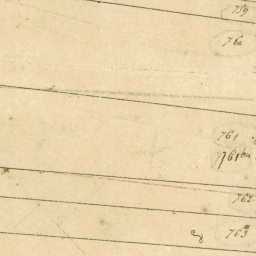 759
760
761
761bis
762
763